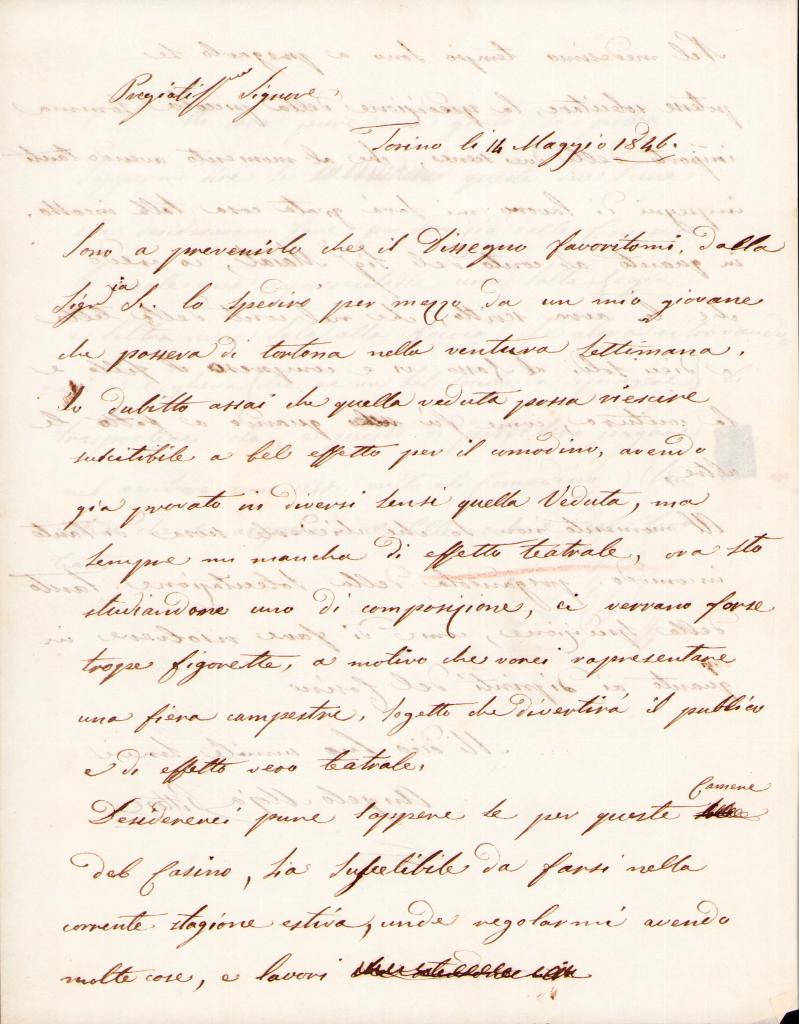 Pregiatiss.mo Signore
Torino li 14 Maggio 1846.
Sono a prevenirlo che il Dissegno favoritomi, dalla
Sign.ia S. lo spedirò per mezzo da un mio giovane
che passerà di tortona nella ventura Settimana,
Io dubitto assai che quella veduta possa riescire
suscitibile a bel effetto per il comodino, avendo
gia provato in diversi sensi quella Veduta, ma
sempre mi mancha di effetto teatrale, ora sto
studiandone uno di composizione, ci verrano forse
trope figorette, a motivo che vorei rapresentare
una fiera campestre, sogetto che divertirà il publico
e di effetto vero teatrale,
Desidererei pure sappere se per queste Camere
del Casino, sia suscetibile da farsi nella
corrente stagione estiva, unde regolarmi avendo
molte cose, e lavori